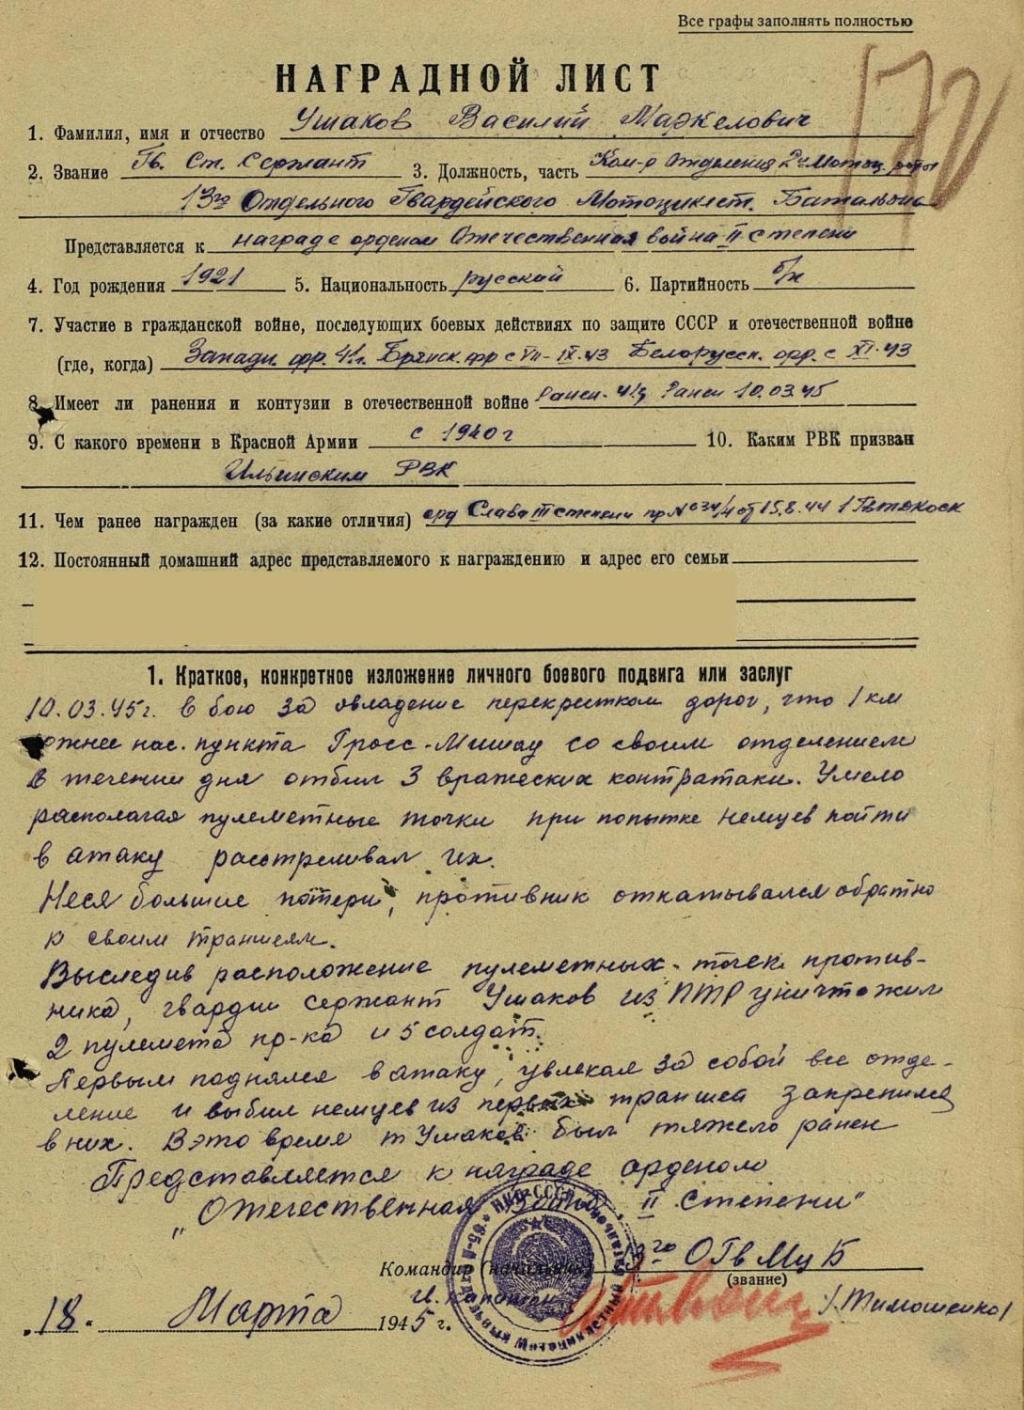 Все графы заполнять полностью
170
НАГРАДНОЙ ЛИСТ
1. Фамилия, имя и отчество Ушаков Василий Маркелович
2. Звание Гв. Ст. Сержант 3. Должность, часть Ком-р Отделения 2й Мотоц. роты
13го Отдельного Гвардейского Мотоциклет. Батальона
Представляется к награде орденом Отечественная война II степени
4. Год рождения 1921 5. Национальность русский 6. Партийность б/п
7. Участие в гражданской войне, последующих боевых действиях по защите СССР и отечественной войне
(где, когда) Западн. фр. 41г. Брянск. фр с VII-IX.43 Белорусск. фр. с XI.43
8. Имеет ли ранения и контузии в отечественной войне Ранен 10.03.45
9. С какого времени в Красной Армии с 1940 г 10. Каким РВК призван
Ильинским РВК
11. Чем ранее награжден (за какие отличия) орд Слава III степени пр № 034/4 от 15.8.44 1
12. Постоянный домашний адрес представляемого к награждению и адрес его семьи
1. Краткое, конкретное изложение личного боевого подвига или заслуг
10.03.45г. в бою за овладение перекрестком дорог, что 1 км
южнее нас. пункта Гросс-Мишау со своим отделением
в течении дня отбил 3 вражеских контратаки. Умело
располагая пулеметные точки при попытке немцев пойти
в атаку расстреливал их.
Неся большие потери, противник откатывался обратно
к своим траншеям.
Выследив расположение пулеметных точек против-
ника, гвардии сержант Ушаков из ПТР уничтожил
2 пулемета пр-ка и 5 солдат.
Первым поднялся в атаку, увлекая за собой все отде-
ление и выбил немцев из первых траншей закрепился
в них. В это время т Ушаков был тяжело ранен
Представляется к награде орденом
„Отечественная война II степени"
Командир (начальник) 13го ОГвМцБ
(звание)
гв. капитан /Тимошенко/
18. Марта 1945 г.